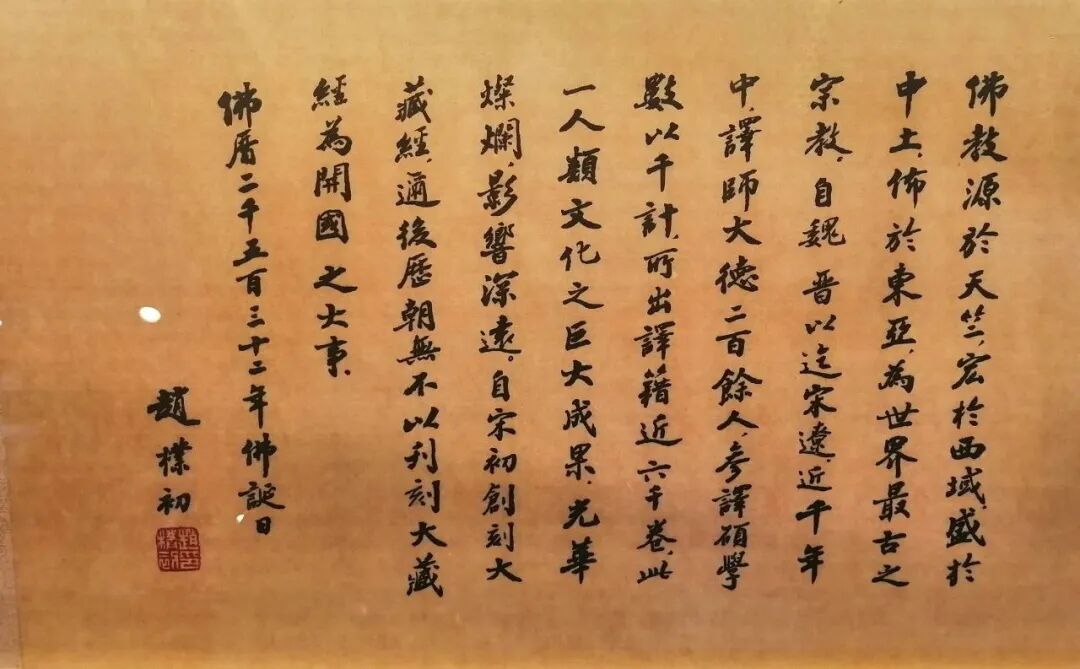 佛教源於天竺，宏於西域，盛於
中土，佈於東亞，為世界最古之
宗教。自魏晉以迄宋遼，近千年
中，譯師大德二百餘人，參譯碩學
數以千計，所出譯籍近六千卷，此
一人類文化之巨大成果，光華
燦爛，影響深遠。自宋初創刻大
藏經，邇後歷朝無不以刋刻大藏
經為開國之大事。
佛曆二千五百三十二年佛誕日
趙樸初
趙樸初印